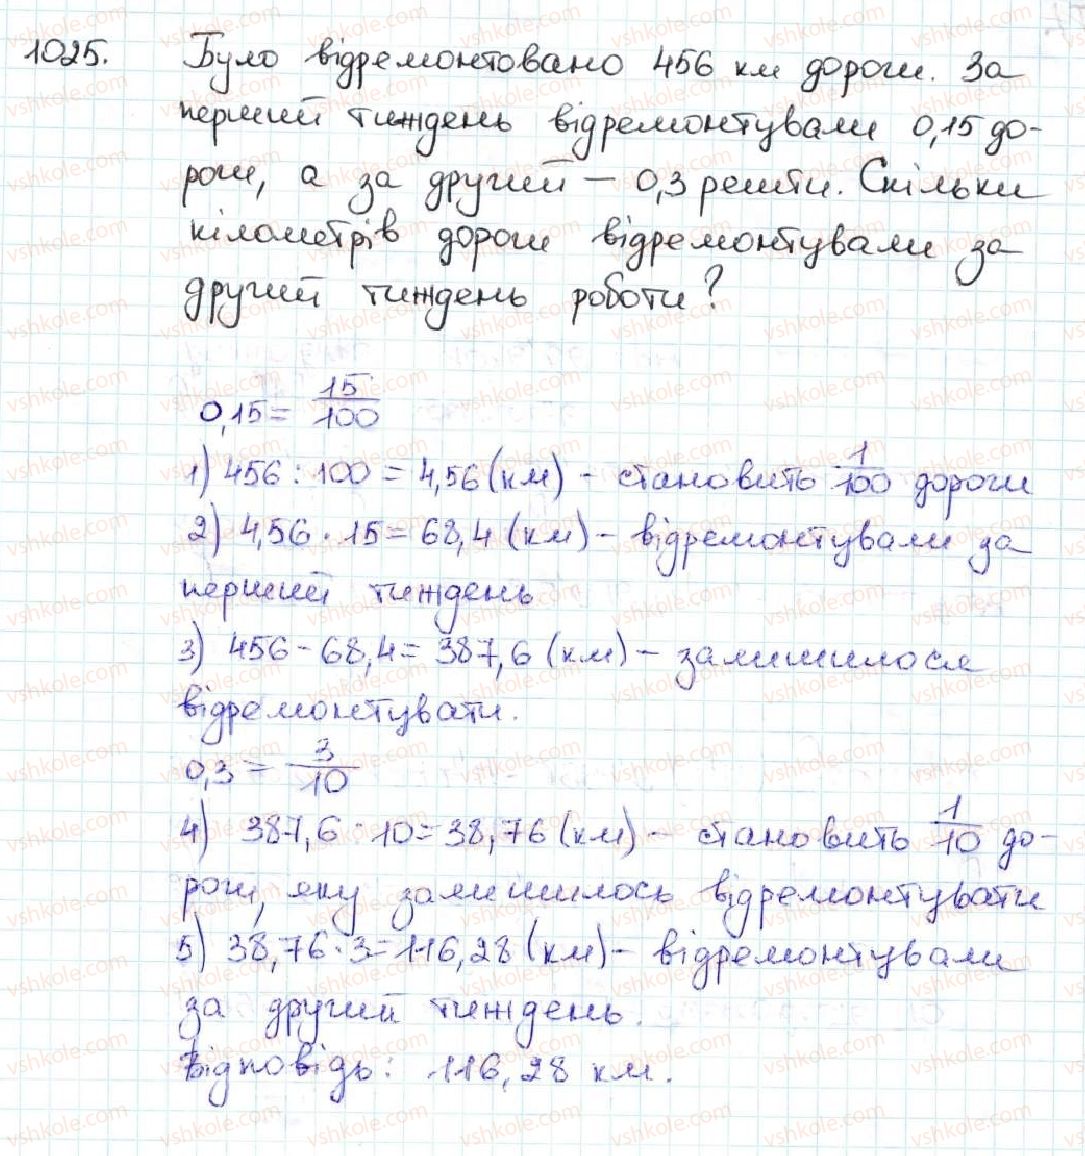 1025. Було відремонтовано 456 км дороги. За
перший тиждень відремонтували 0,15 до-
роги, а за другий – 0,3 решти. Скільки
кілометрів дороги відремонтували за
другий тиждень роботи?
0,15 = 15/100
1) 456 : 100 = 4,56 (км) - становить 1/100 дороги
2) 4,56 · 15 = 68,4 (км) – відремонтували за
перший тиждень
3) 456 - 68,4 = 387,6 (км) – залишилося
відремонтувати.
0,3 = 3/10
4) 387,6 : 10 = 38,76 (км) – становить 1/10 до-
роги, яку залишилось відремонтувати
5) 38,76 · 3 = 116,28 (км) – відремонтували
за другий тиждень.
Відповідь: 116,28 км.